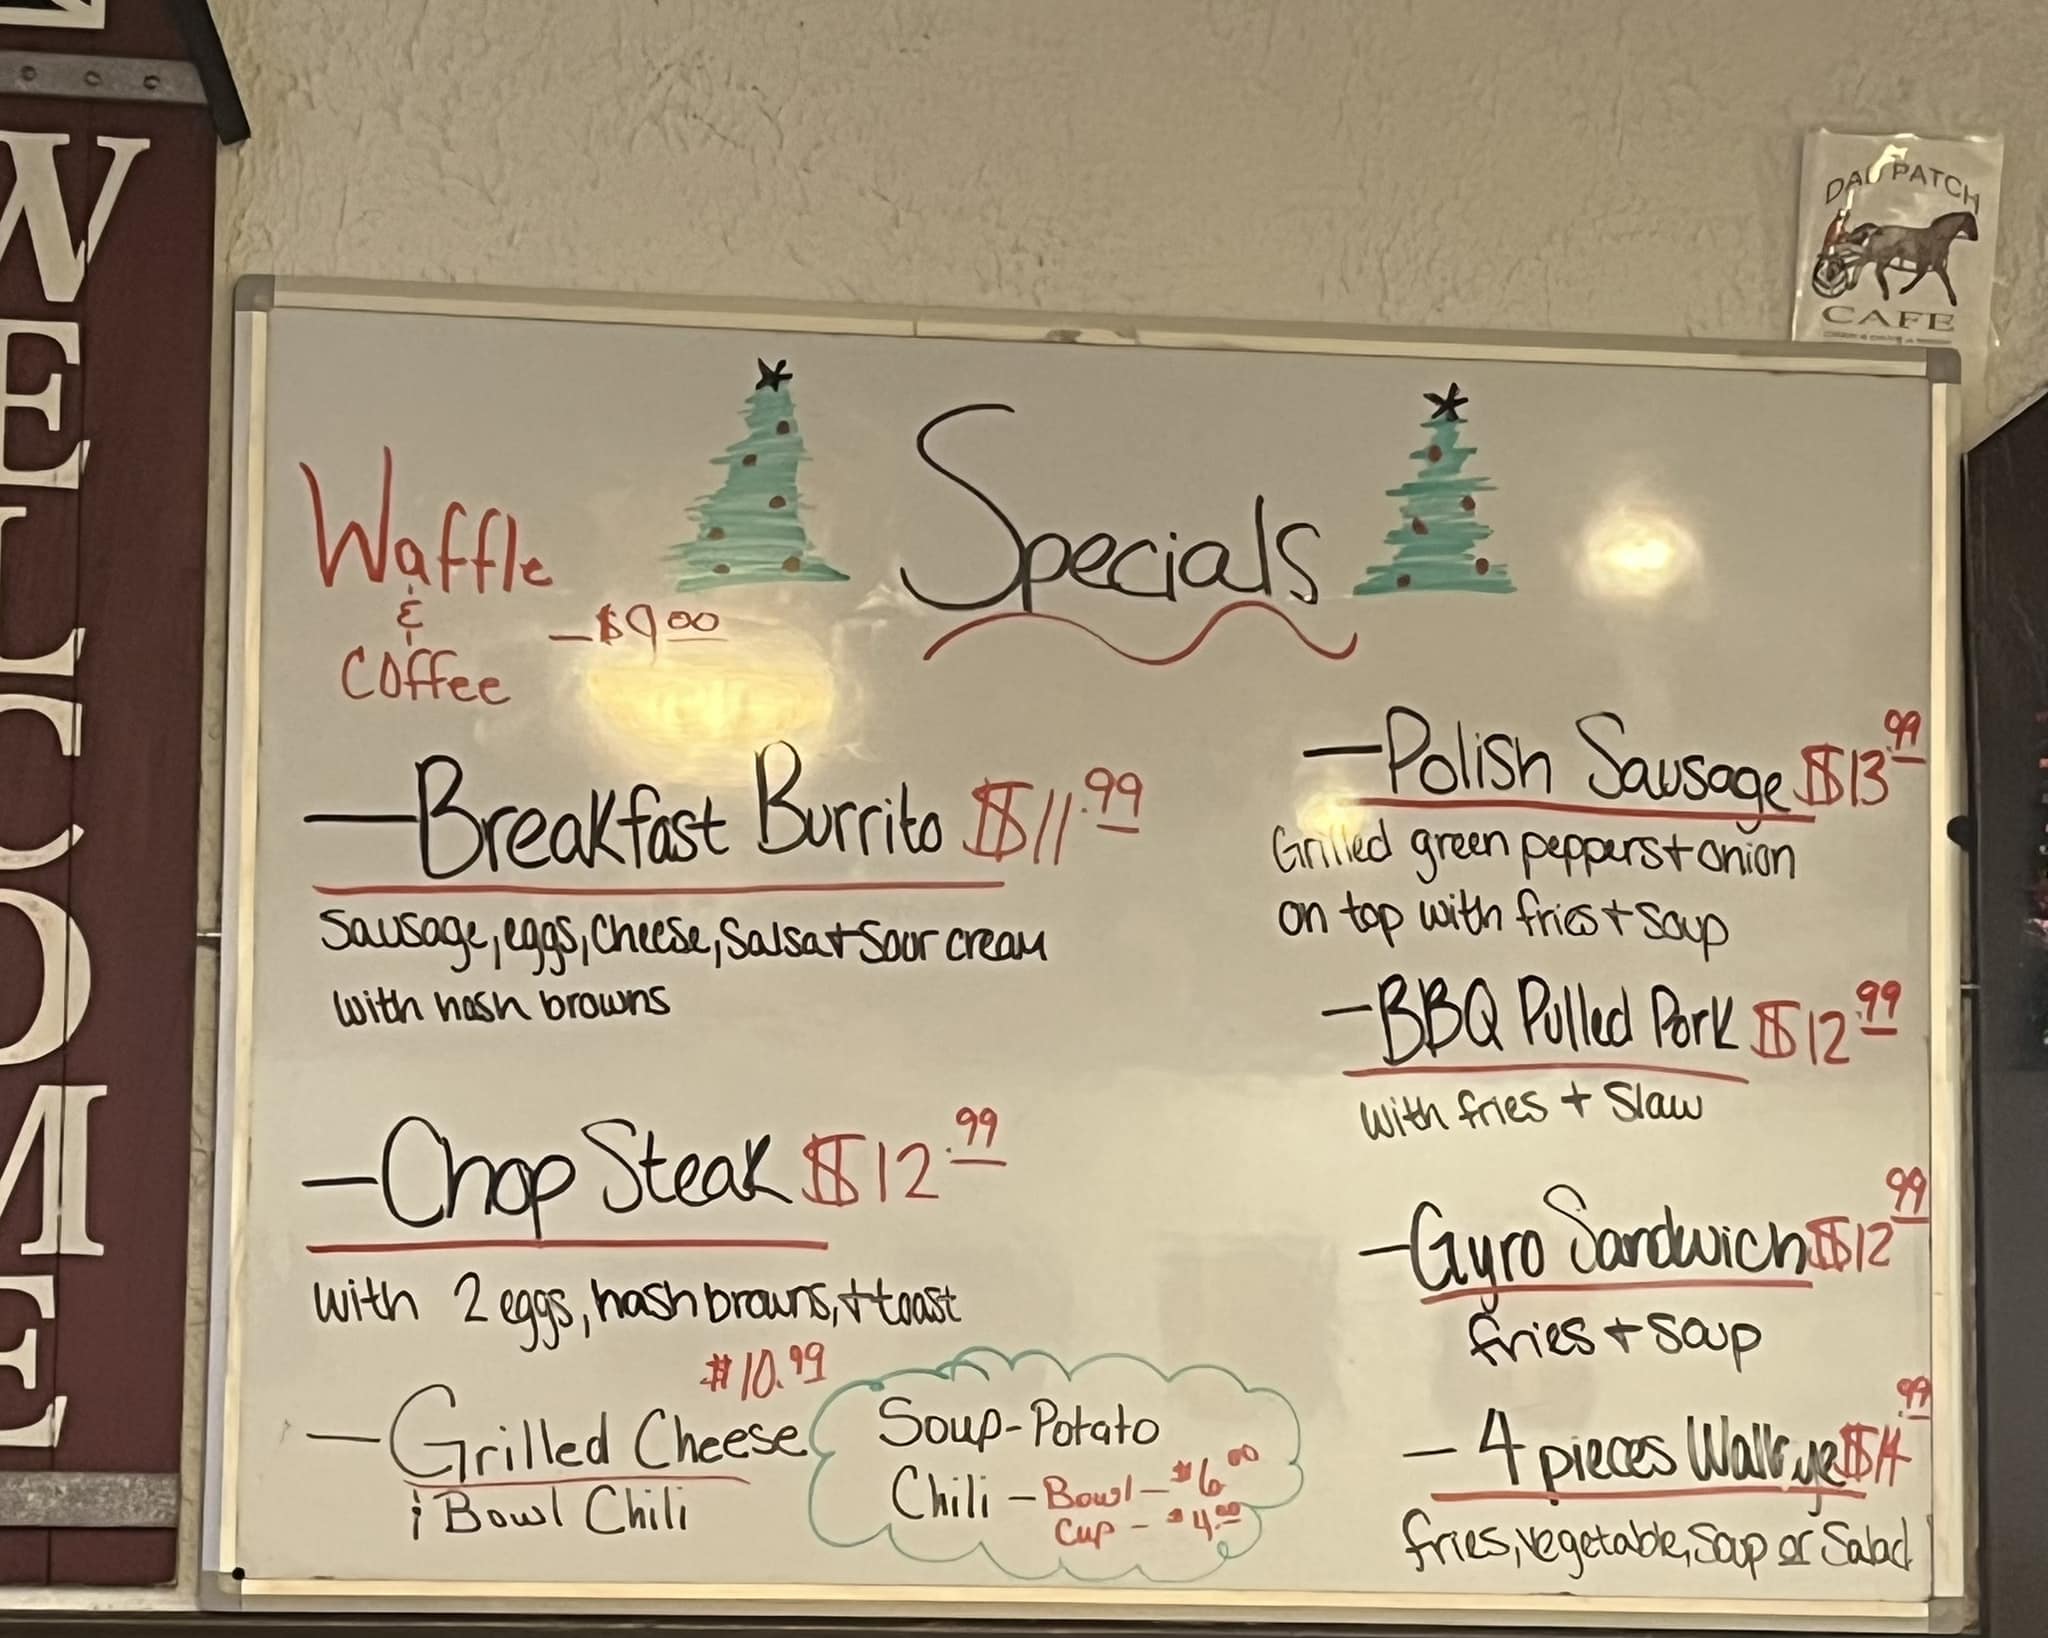 WELCOME
DAN PATCH
CAFE
Specials
Waffle
&
Coffee
—$9.00
—Breakfast Burrito $11.99
Sausage, eggs, cheese, Salsa + Sour cream
with hash browns
—Chop Steak $12.99
with 2 eggs, hash browns, + toast
$10.99
—Grilled Cheese
& Bowl Chili
Soup-Potato
Chili - Bowl - $6.00
Cup - $4.00
—Polish Sausage $13.99
Grilled green peppers + onion
on top with fries + Soup
—BBQ Pulled Pork $12.99
with fries + Slaw
—Gyro Sandwich $12.99
fries + Soup
—4 pieces Walleye $14.99
fries, vegetable, Soup or Salad